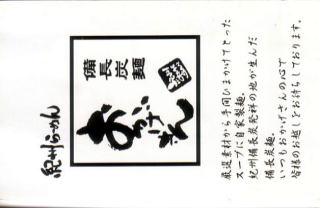 紀州らーめん
備長炭麺
おかげさん
厳選素材から手間ひまかけてとった
スープに自家製麺。
紀州備長炭発祥の地が生んだ
備長炭麺。
いつもおかげさんの心で
皆様のお越しをお待ちしております。